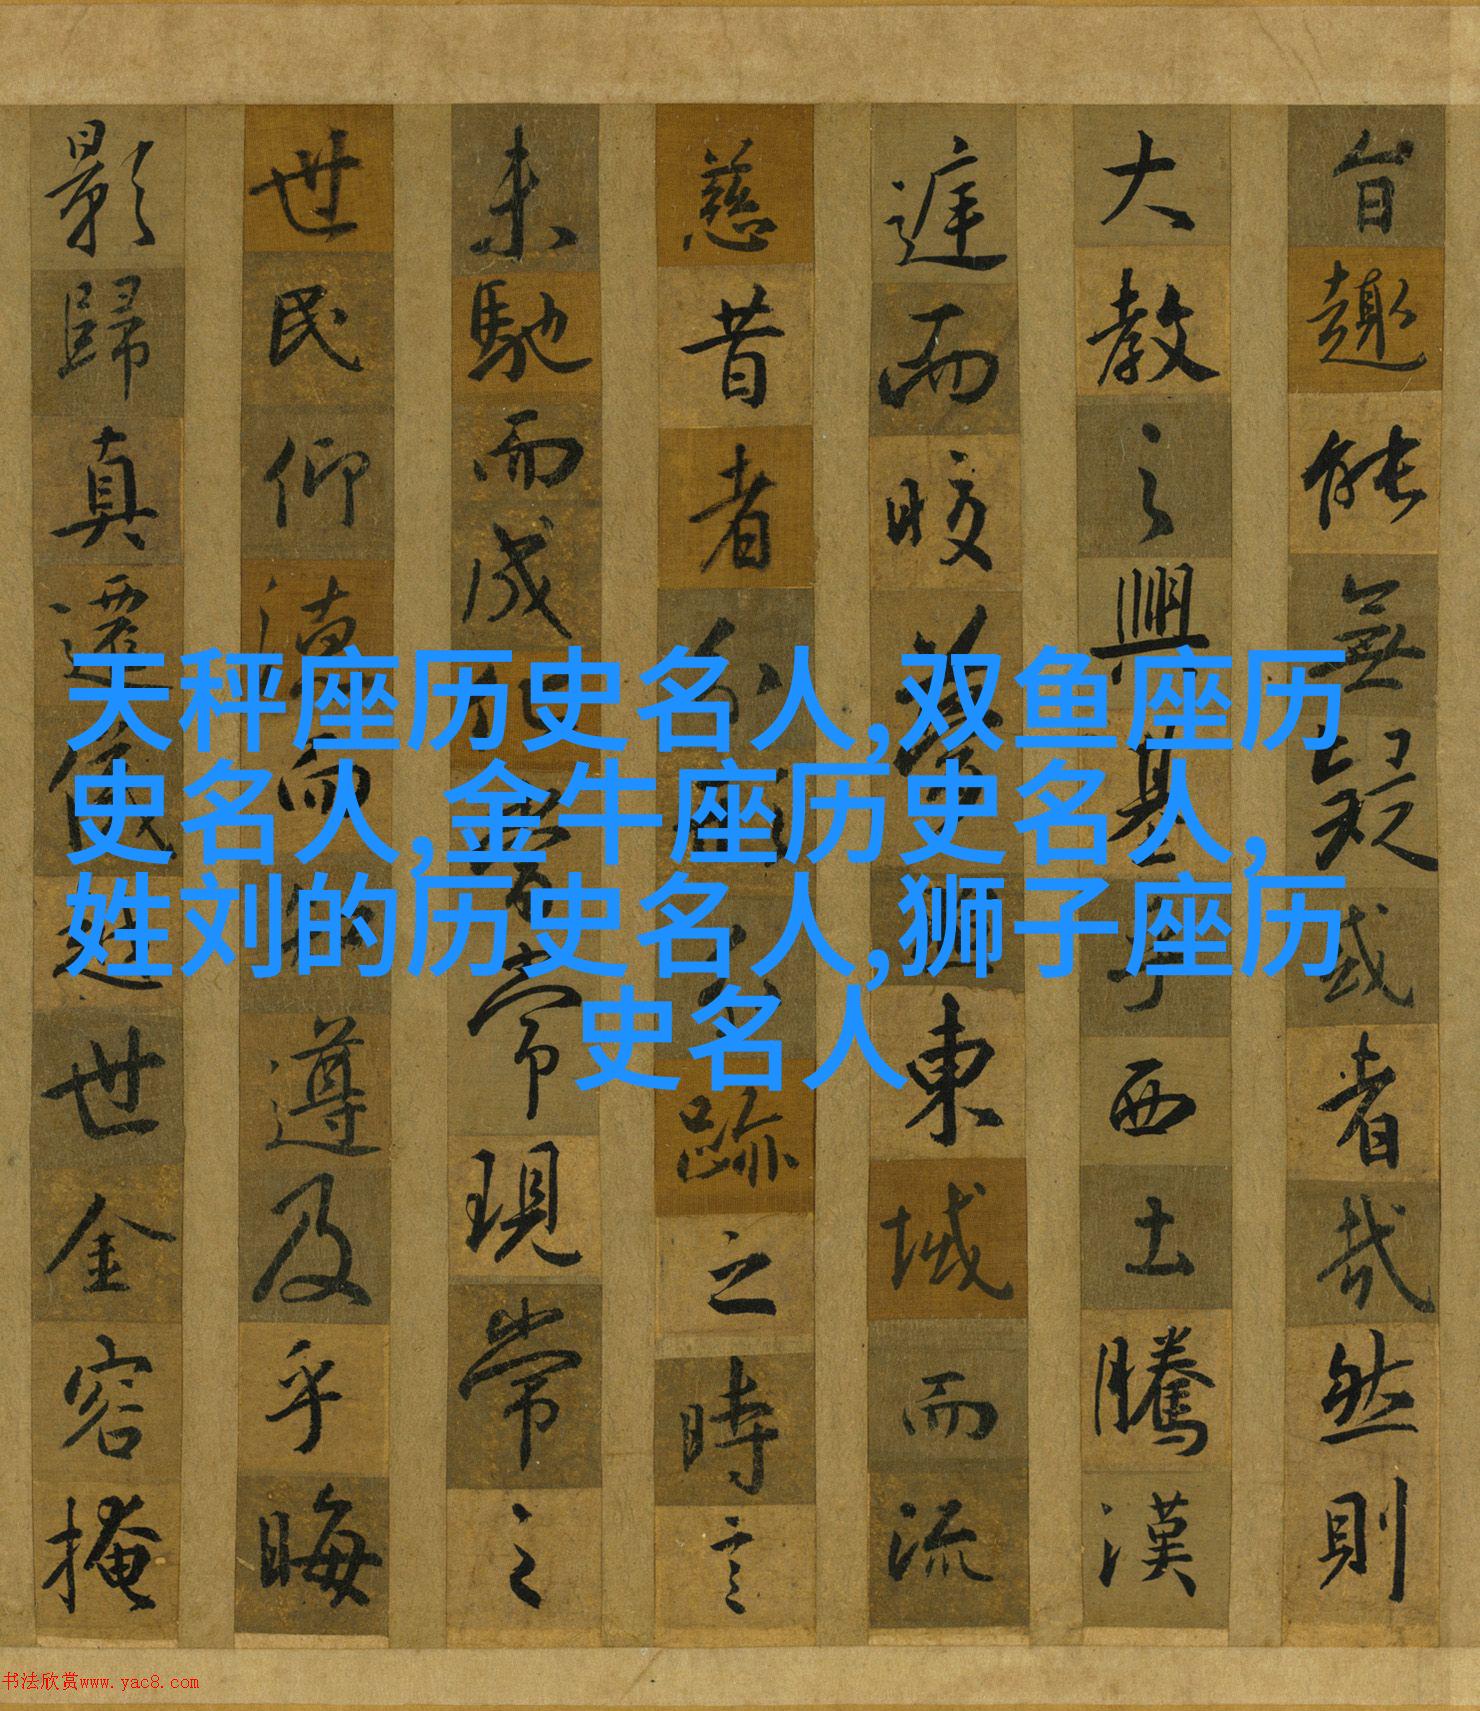 旨趣能無疑或者哉然則
大教之興基乎西土騰漢
庭而皎夢照東域而流
慈昔者分形分跡之時言
未馳而成化當常現常之
世民仰德而知遵及乎晦
影歸真遷儀越世金容掩
天秤座历史名人,双鱼座历
史名人,金牛座历史名人,
姓刘的历史名人,狮子座历
史名人
书法欣赏www.yac8.com